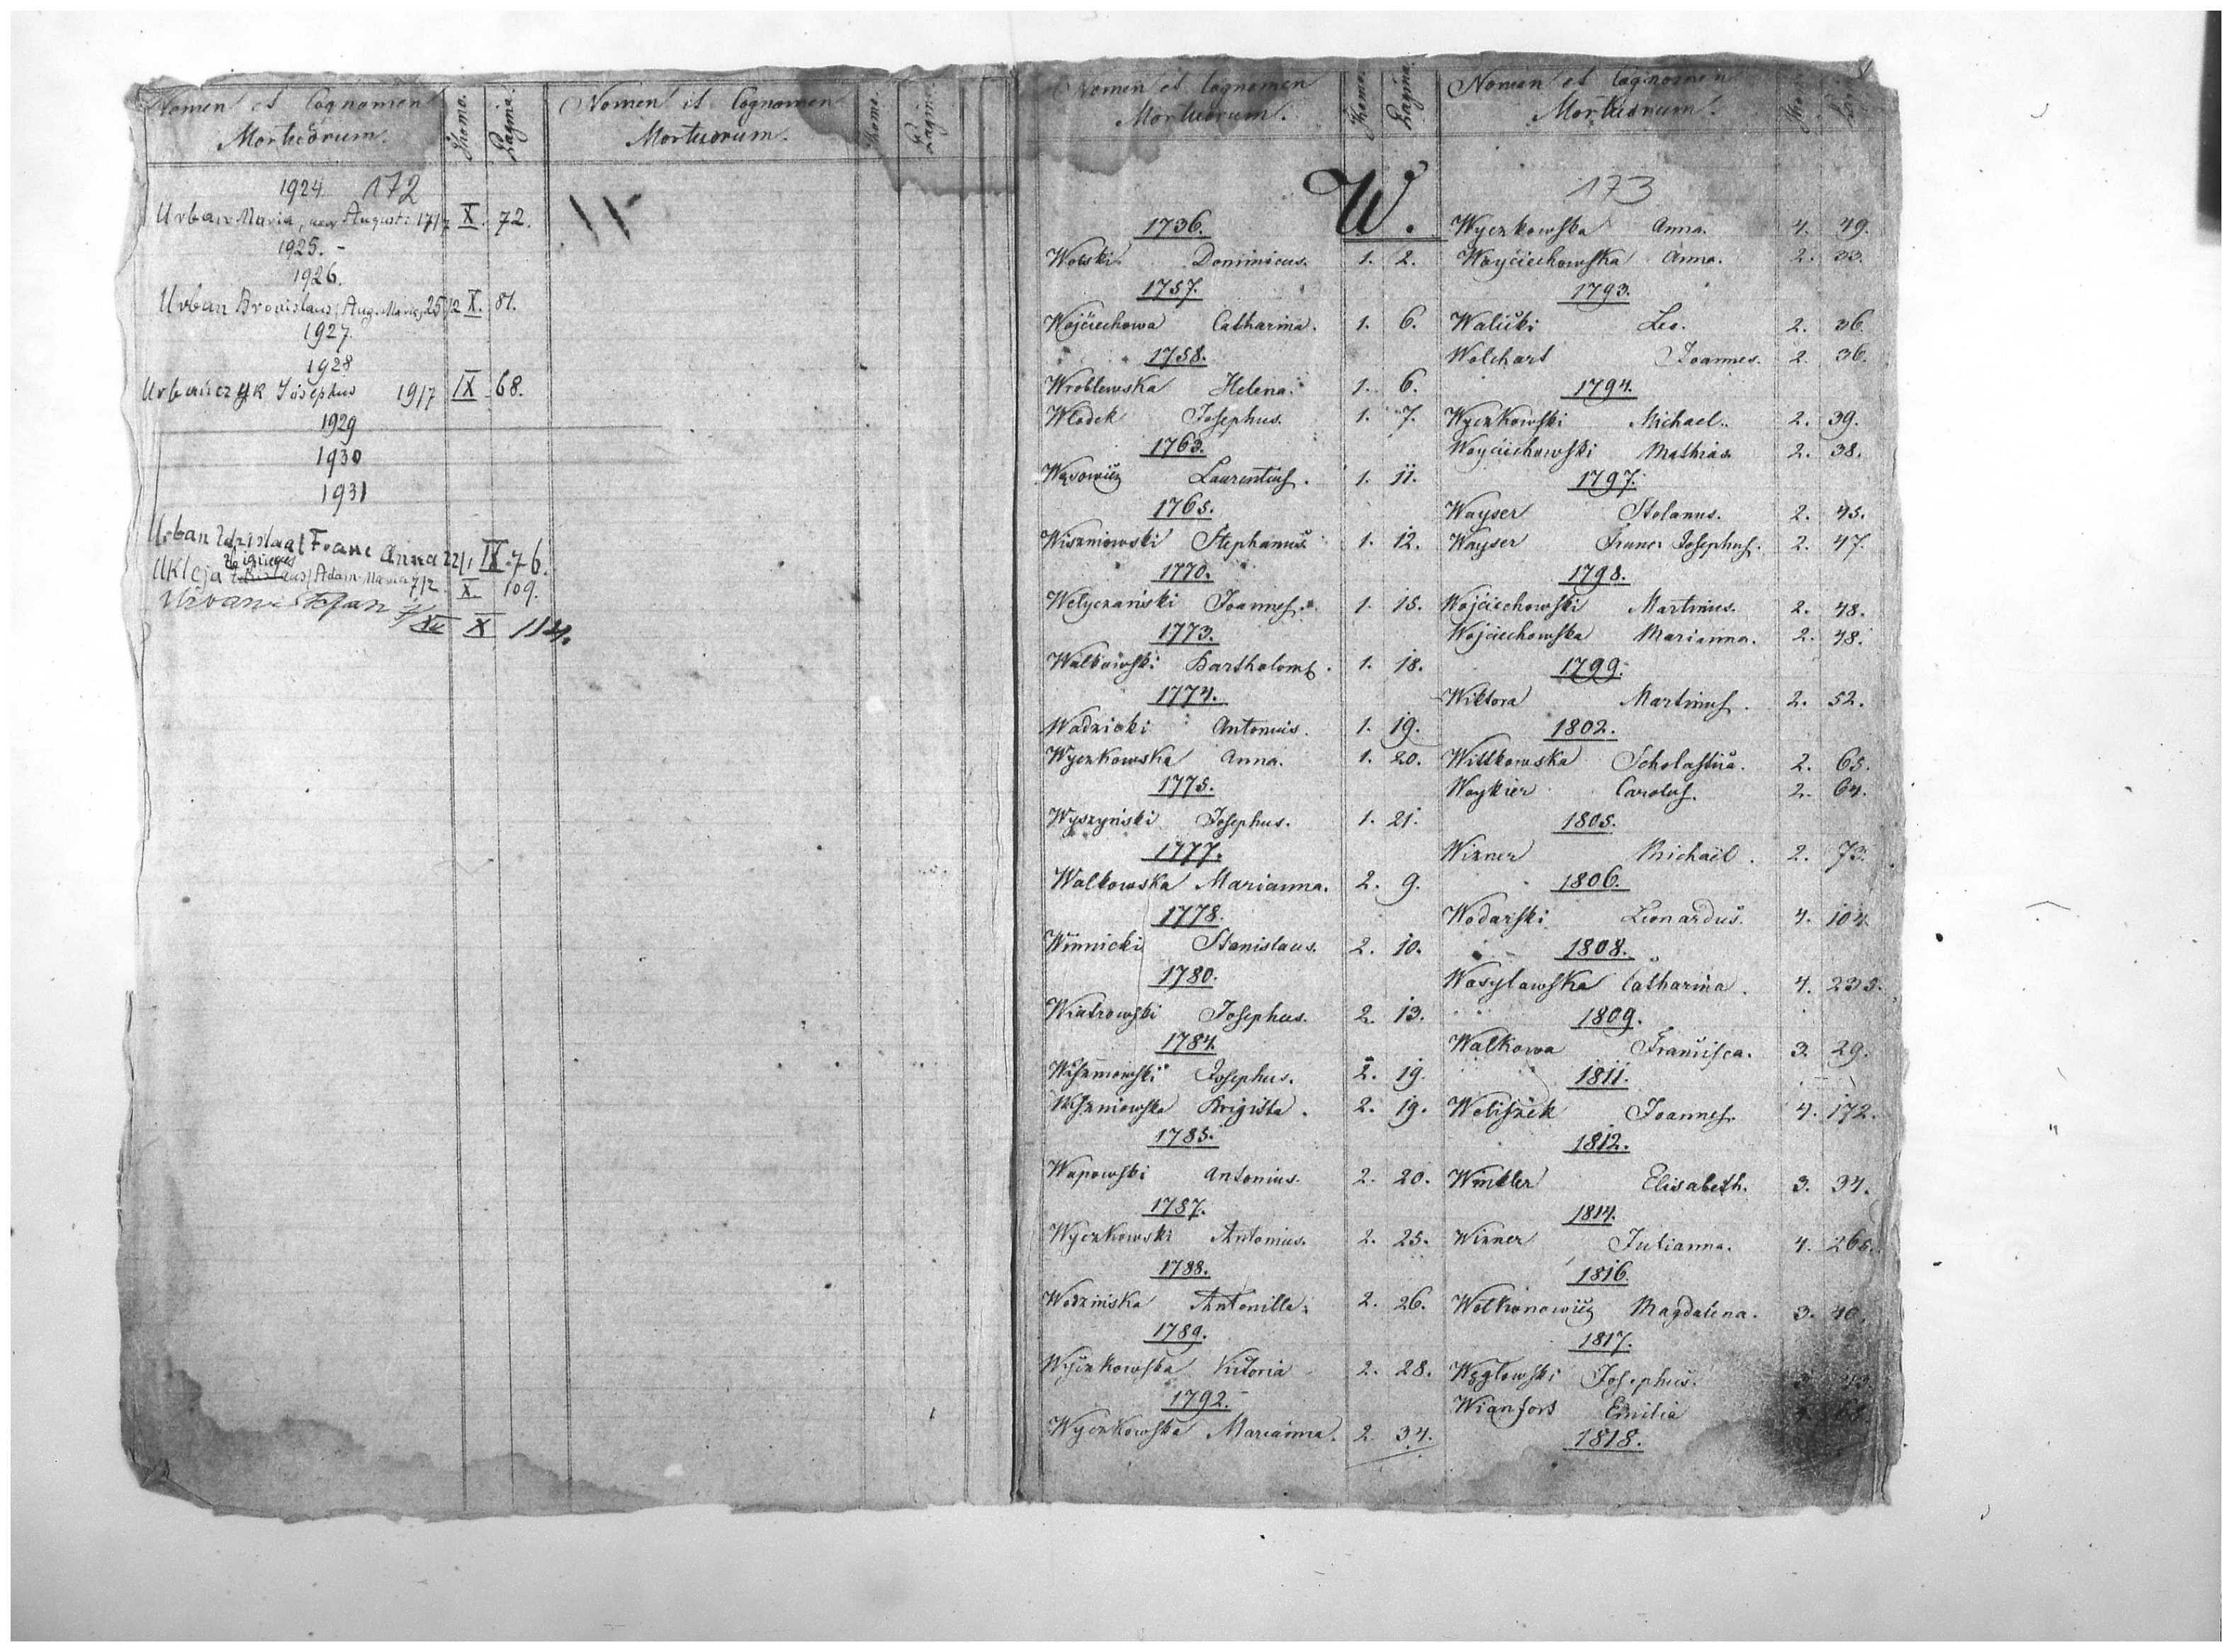 Nomen et Cognomen
Mortuorum.
Thomo.
Pagina.
Nomen et Cognomen
Mortuorum.
Thomo.
Pagina.
1924 172
Urban Maria, Augusti 17/7 X. 72.
1925. -
1926.
Urban Bronislaus (Aug. Maria) 25/12 X. 81.
1927.
1928
Urbańczyk Josephus 19/7 IX 68.
1929
1930
1931
Urban Franc Anna 22/1 IX. 76.
Ukleja Adam Maria 7/2 X. 109.
Urban Stefan XII X 114.
Nomen et Cognomen
Mortuorum.
Thomo.
Pagina.
W.
1736.
Wolski Dominicus. 1. 2.
1757.
Wojciechowa Catharina. 1. 6.
1758.
Wroblewska Helena. 1. 6.
Włodek Josephus. 1. 7.
1763.
Wąsowicz Laurentius. 1. 11.
1765.
Wiszniowski Stephanus. 1. 12.
1770.
Welyczański Joannes. 1. 15.
1773.
Walkowski Bartholom. 1. 18.
1774.
Wadzicki Antonius. 1. 19.
Wyczkowska Anna. 1. 20.
1775.
Wyszyński Josephus. 1. 21.
1777.
Walkowska Marianna. 2. 9.
1778.
Winnicki Stanislaus. 2. 10.
1780.
Wiatrowski Josephus. 2. 13.
1784.
Wiszniowski Josephus. 2. 19.
Wiszniowska Brigitta. 2. 19.
1785.
Wapowski Antonius. 2. 20.
1787.
Wyczkowski Antonius. 2. 25.
1788.
Wodzińska Antonilla. 2. 26.
1789.
Wyczkowska Victoria 2. 28.
1792.
Wyczkowska Marianna. 2. 34.
Nomen et Cognomen
Mortuorum.
173
Wyczkowska Anna. 4. 49.
Woyciechowska Anna. 2. 33.
1793.
Walicki Leo. 2. 36.
Wolchart Joannes. 2. 36.
1794.
Wyczkowski Michael. 2. 39.
Woyciechowski Mathias. 2. 38.
1797.
Wayser 2. 45.
Wayser Josephus. 2. 47.
1798.
Wojciechowski Martinus. 2. 48.
Wojciechowska Marianna. 2. 48.
1799.
Wiktora Martinus. 2. 52.
1802.
Wittkowska Scholastica. 2. 65.
Woykier Carolus. 2. 64.
1805.
Wizner Michaël. 2. 73.
1806.
Wodarski Leonardus. 4. 104.
1808.
Wasylawska Catharina. 4. 235.
1809.
Walkowa Francisca. 3. 29.
1811.
Weliszek Joannes. 4. 172.
1812.
Winkler Elisabeth. 3. 34.
1814.
Wizner Julianna. 4. 265.
1816.
Wolkonowicz Magdalena. 3. 40.
1817.
Węglowski Josephus.
Wianfors Emilia
1818.